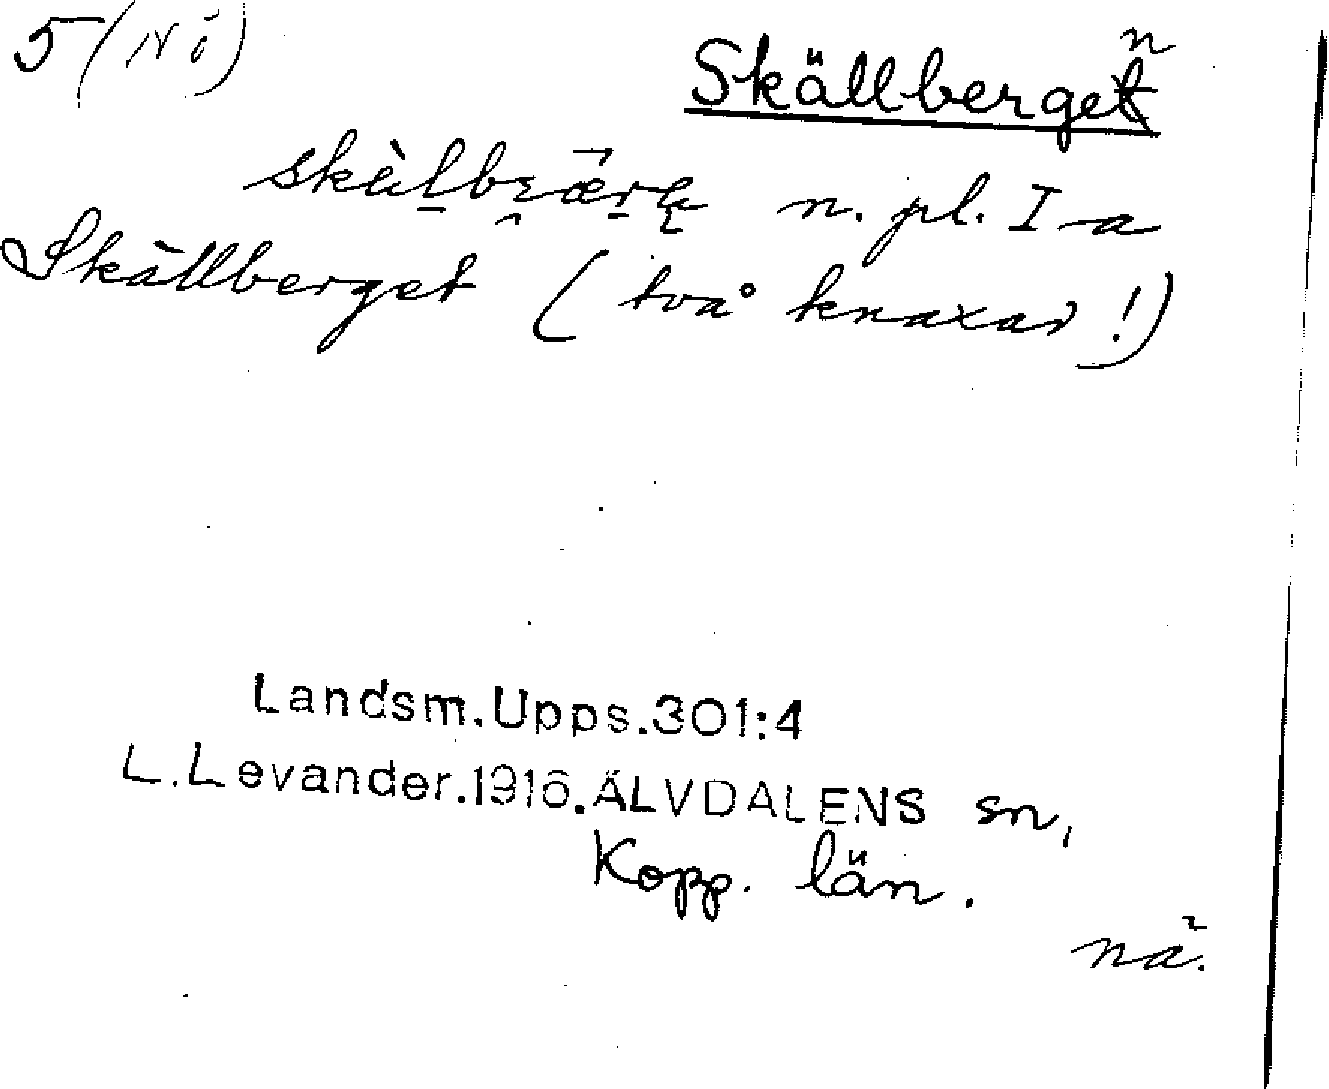 5 (Nö)
Skällbergen
n. pl. I a
Skällberget (två knaxar!)
Landsm.Upps.301:4
L.Levander.1916.ÄLVDALENS sn,
Kopp. län.
nä.